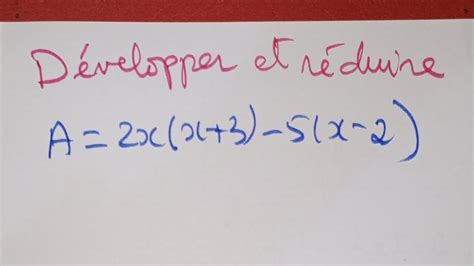 Développer et réduire
A = 2x(x+3) - 5(x-2)